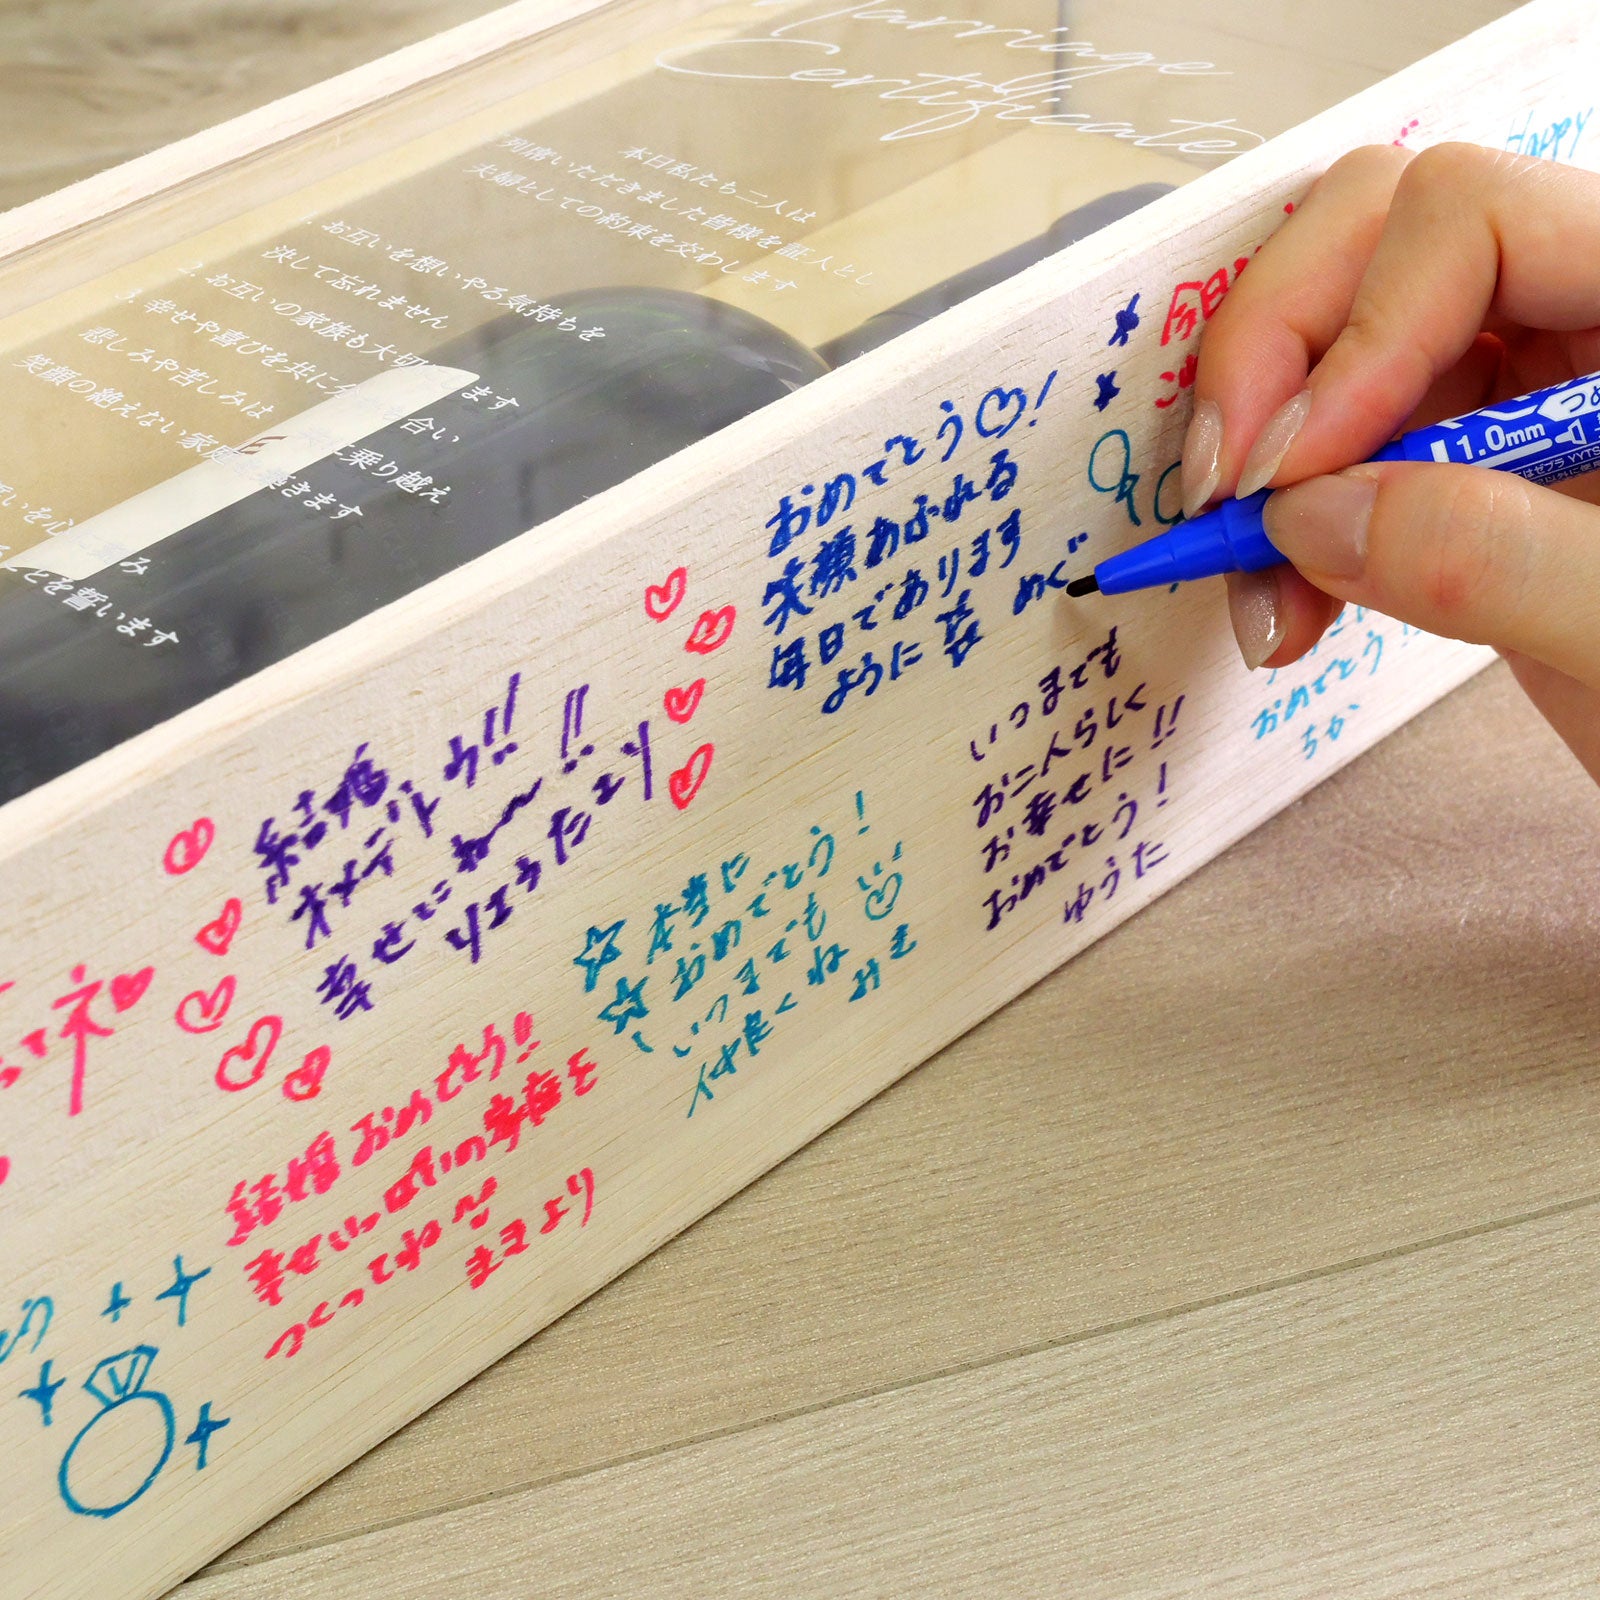 Marriage
Certificate
本日私たち二人は
列席いただきました皆様を証人とし
夫婦としての約束を交わします
お互いを想いやる気持ちを
決して忘れません
2. お互いの家族も大切にします
3. 幸せや喜びを共に分かち合い
悲しみや苦しみは共に乗り越え
笑顔の絶えない家庭を築きます
いを心に
とを誓います
Happy
今日
おめでとう♡!
笑顔あふれる
毎日であります
ように
めぐ
いつまでも
お二人らしく
お幸せに!!
おめでとう!
ゆうた
おめでとう!!
ちか
結婚
オメデトウ!!
幸せにね〜!!
リョウタヨリ
☆本当に
☆おめでとう!
いつまでも
仲良くね♡
みき
結婚おめでとう!!
幸せいっぱいの家庭を
つくってね
まきより
とう
1.0mm